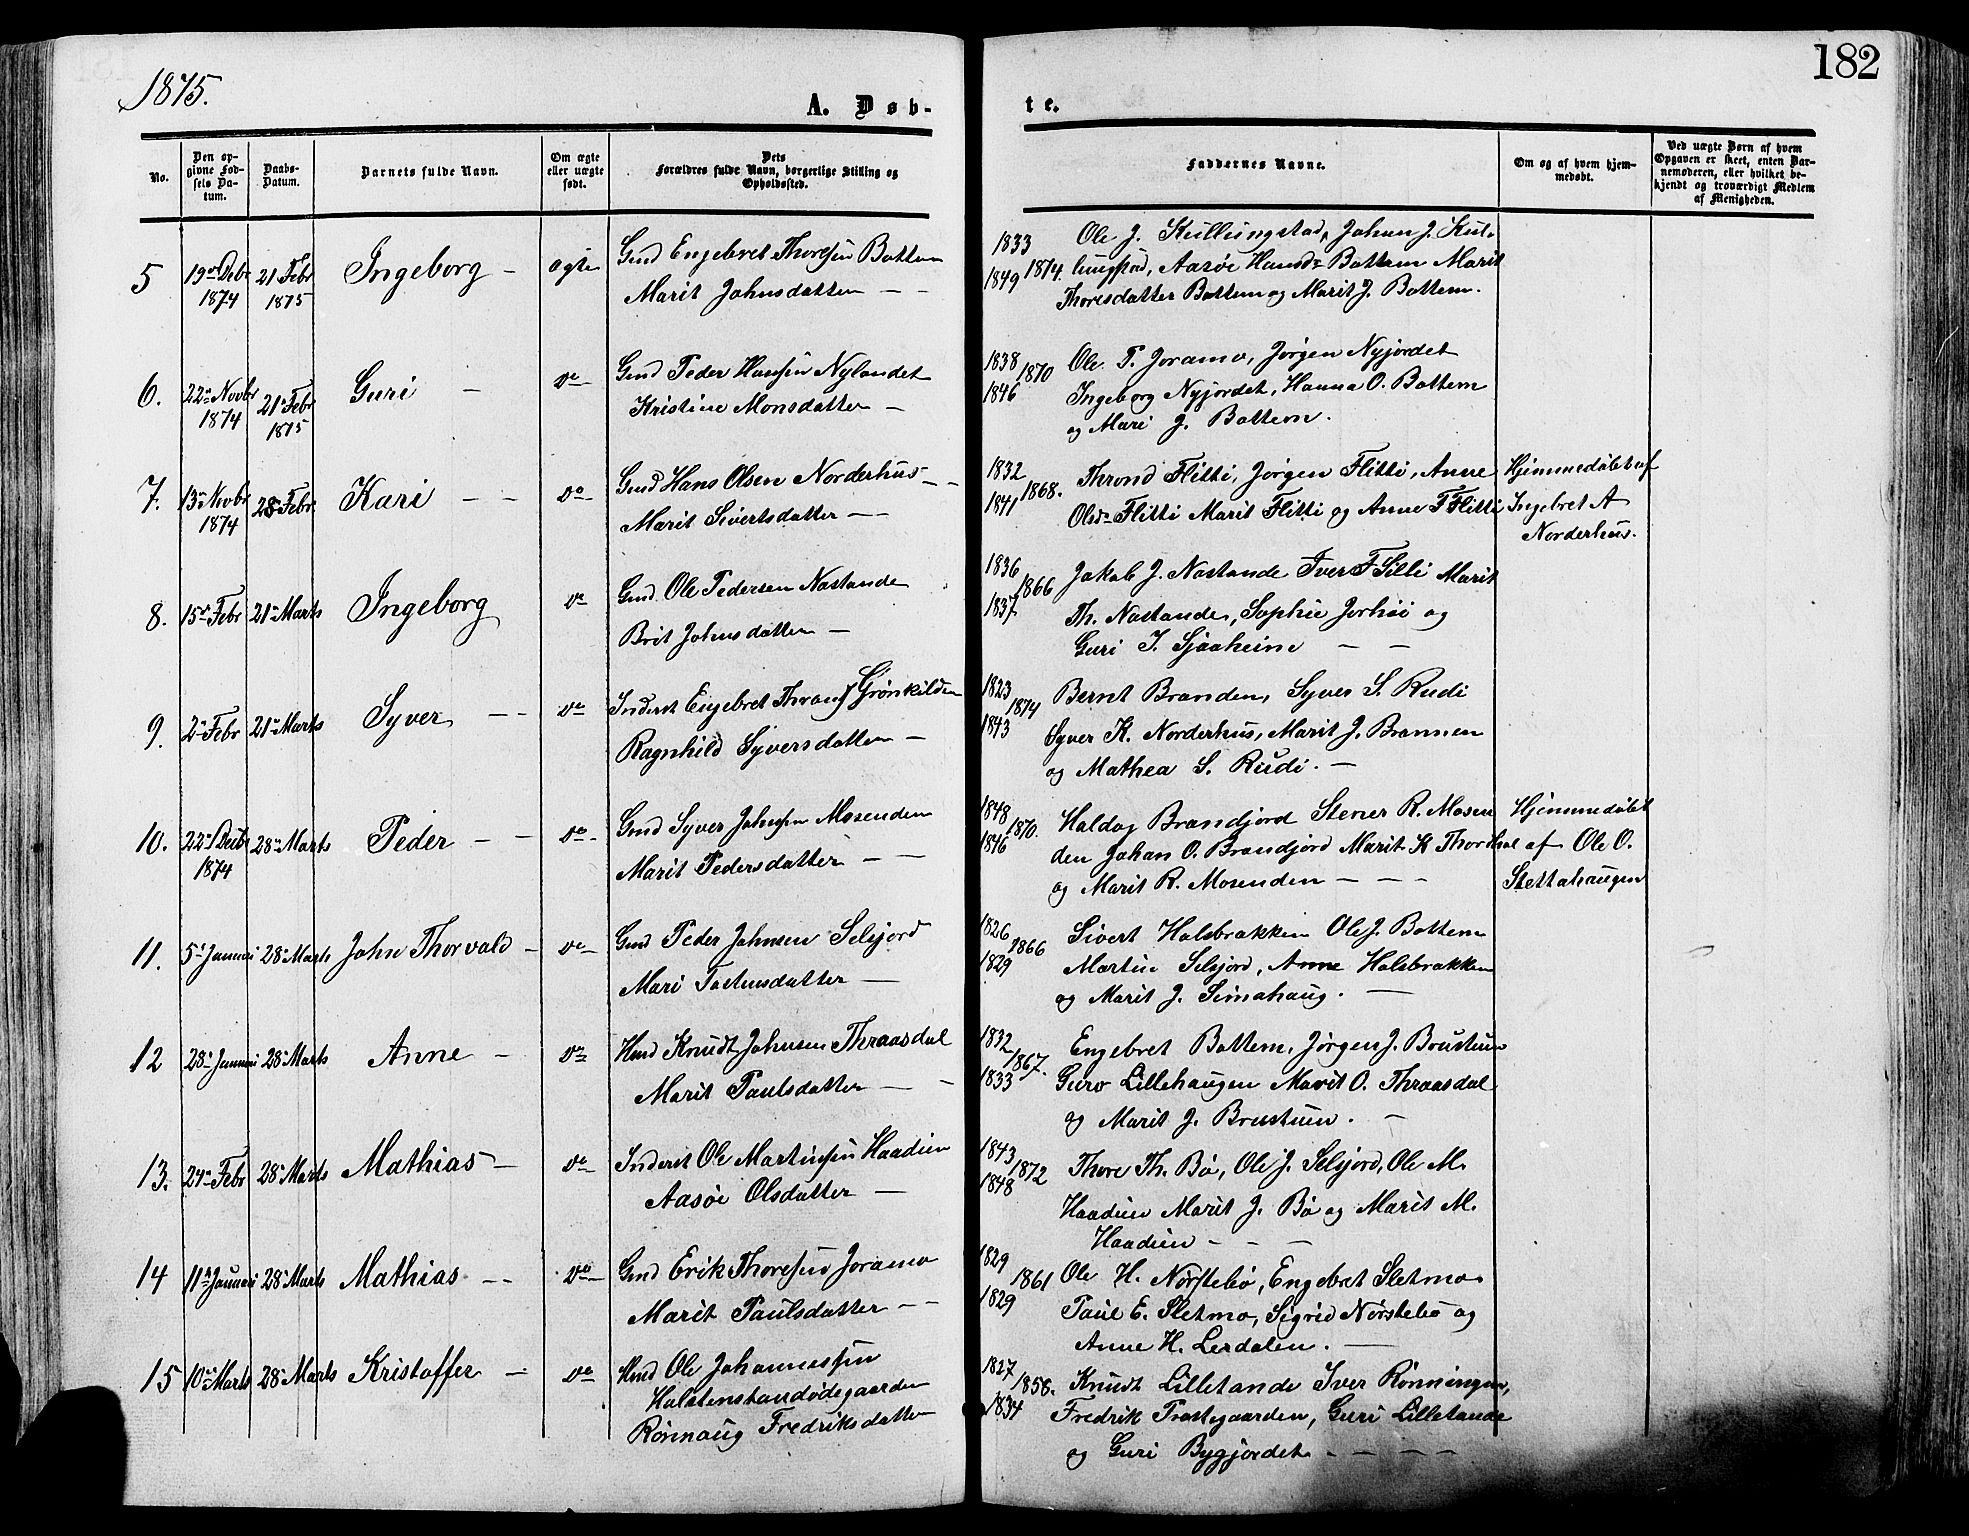 182
1875.
A. Døb-
te.
No.
Den op-
givne Fød-
sels Da-
tum.
Daabs-
Datum.
Barnets fulde Navn.
Om ægte
eller uægte
født.
Dets
Forældres fulde Navn, borgerlige Stilling og
Opholdssted.
Faddernes Navne.
Om og af hvem hjem-
medøbt.
Ved uægte Børn af hvem
Opgaven er skeet, enten Bar-
nemoderen, eller hvilket be-
kjendt og troværdigt Medlem
af Menigheden.
5 19de Debr 21 Febr Ingeborg - ægte Gmd Engebret Thoresen Bottem
1874 1875 Marit Johnsdatter - -
1833 Ole J. Kullungstad, Johan J. Kul-
1849 1874. lungstad, Aasøe Hansdr Bottem Marit
Thoresdatter Bottem og Marit J. Bottem.
6. 22de Novbr 21 Febr Guri - do Gmd Peder Hansen Nylandet
1874 1875 Kristine Monsdatter -
1838 1870 Ole P. Joramo, Jørgen Nyjordet
1846 Ingeborg Nyjordet, Hanna O. Bottem
og Mari J. Bottem.
7. 13de Novbr 28 Febr Kari - - do Gmd Hans Olsen Norderhus - -
1874 Marit Sivertsdatter - -
1832 Thrond Flitti, Jørgen Flitti, Anne Hjemmedøbt af
1841 1868. Olsdr Flitti Marit Flitti og Anne F Flitti Ingebret A
Norderhus.
8. 15de Febr 21de Marts Ingeborg do Gmd. Ole Pedersen Nastande
Brit Johnsdatter -
1836 1866 Jakob J. Nastande Iver F Silli Marit
1837 Th. Nastande, Sophie Jorhøi og
Guri I. Sjaaheim - -
9. 2de Febr 21de Marts Syver - - do Inderst Engebret Throns Grønkilden
Ragnhild Syversdatter -
1823 1874 Bernt Branden, Syver S. Rudi
1843 Syver K. Norderhus, Marit J. Brannen
og Mathea S. Rudi. -
10. 22de Debr 28de Marts Peder - - do Gmd Syver Johnsen Mosenden
1874 Marit Pedersdatter - -
1848 1870. Haldog Brandjord Stener R. Mosen Hjemmedøbt
1846 den Johan O. Brandjord Marit K Thordhol af Ole O.
og Marit R. Mosenden - - - Stettahaugen
11. 5te Januari 28de Marts John Thorvald - do Gmd Peder Johnsen Selsjord
Mari Tostensdatter -
1826 1866 Sivert Halsbrækken Ole J. Bottem
1829 Martin Selsjord, Anne Halsbrækken
og Marit J. Simahaug. -
12 28de Januari 28 Marts Anne - do Hmd Knudt Johnsen Thraasdal
Marit Paulsdatter - -
1832 1867. Engebret Bottem, Jørgen J. Brustuen
1833 Guro Lillehaugen Marit O. Thraasdal
og Marit J. Brustuen. -
13. 24de Febr 28 Marts Mathias - do Inderst Ole Martinsen Haadien
Aasøe Olsdatter -
1843 1872 Thore Th. Bø, Ole J. Selsjord, Ole M.
1848 Haadien Marit J. Bø og Marit M.
Haadien - - -
14 11te Januari 28 Marts Mathias - - do Gmd Erik Thoresen Joramo
Marit Paulsdatter - -
1829 1861 Ole H. Nørstebø, Engebret Sletmo
1829 Paul E. Sletmo, Sigrid Nørstebø og
Anne H. Lerdalen. -
15 10de Marts 28 Marts Kristoffer - do Hmd Ole Johannessen
Holstenstandødegaarden
Rønnaug Fredriksdatter
1827 1858. Knudt Lilletande Iver Rønningen,
1834 Fredrik Prostegaarden, Guri Lilletande
og Guri Bygjordet - - - -